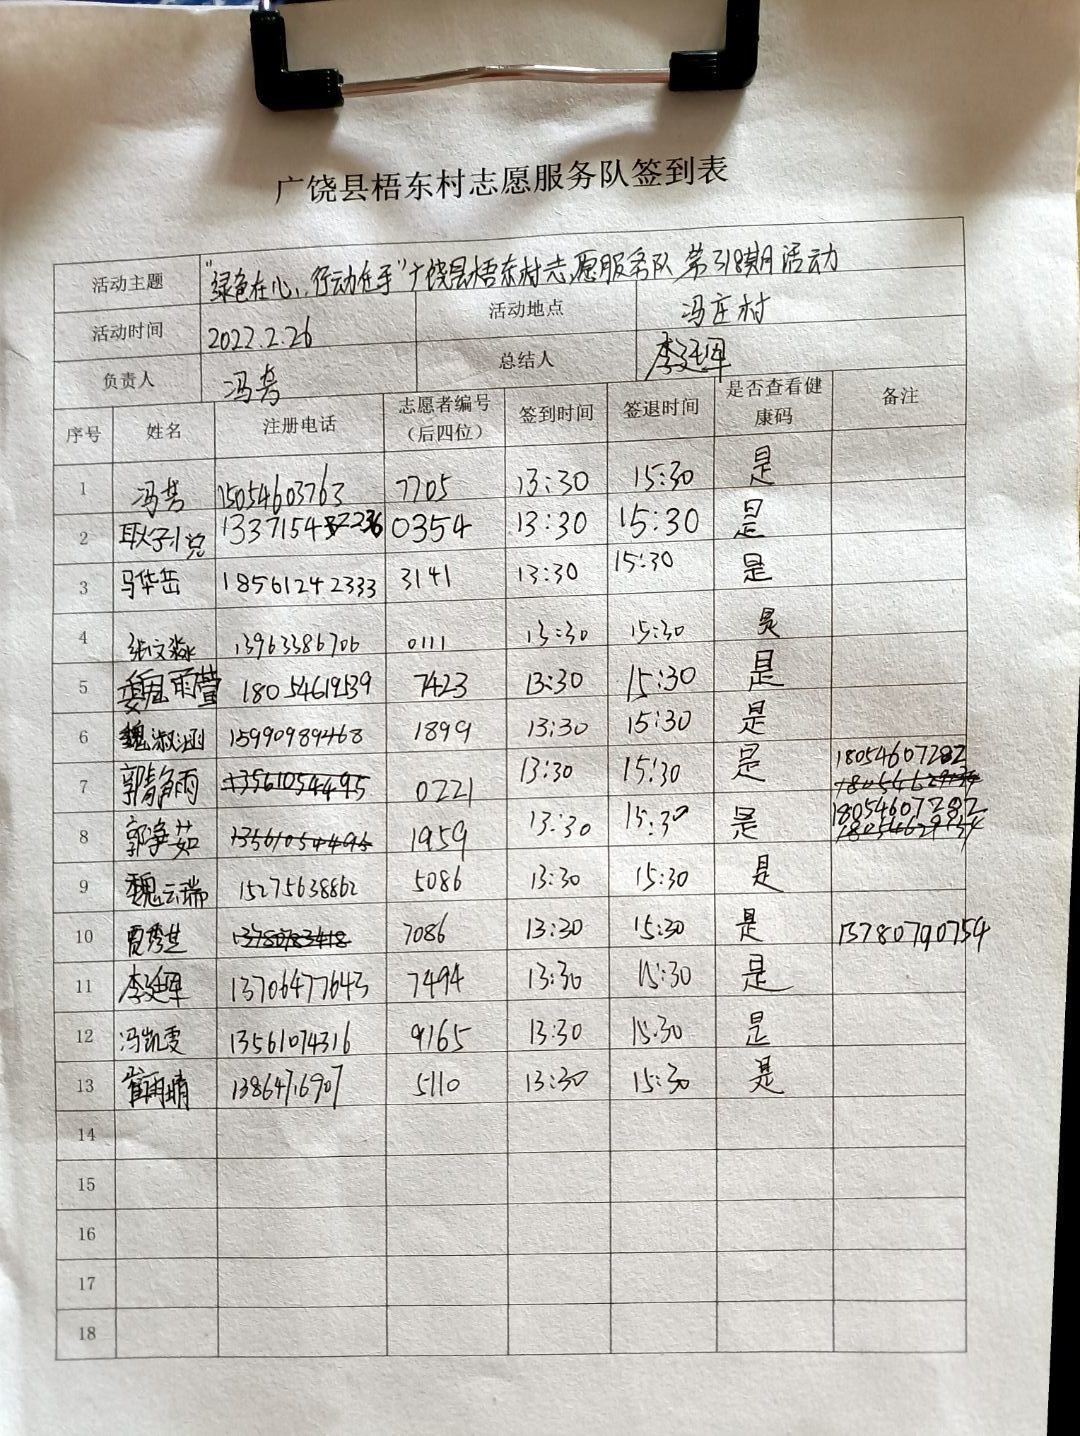 广饶县梧东村志愿服务队签到表
活动主题 "绿色在心，行动在手"广饶县梧东村志愿服务队第318期活动
活动时间 2022.2.26 活动地点 冯庄村
负责人 冯芳 总结人 李廷晖
序号 姓名 注册电话 志愿者编号（后四位） 签到时间 签退时间 是否查看健康码 备注
1 冯芳 15054603763 7705 13:30 15:30 是
2 0354 13:30 15:30 是
3 马华岳 18561242333 3141 13:30 15:30 是
4 张文淼 13963386706 0111 13:30 15:30 是
5 魏雨萱 18054619539 7423 13:30 15:30 是
6 魏淑涵 15990989468 1899 13:30 15:30 是
7 郭静雨 13561054495 0221 13:30 15:30 是 18054607282
8 郭争茹 13561054495 1959 13:30 15:30 是 18054607282
9 魏云瑞 15275638862 5086 13:30 15:30 是
10 贾秀芝 7086 13:30 15:30 是 13780790754
11 李廷晖 13706477643 7494 13:30 15:30 是
12 冯凯雯 13561074316 9165 13:30 15:30 是
13 崔雨晴 5110 13:30 15:30 是
14
15
16
17
18